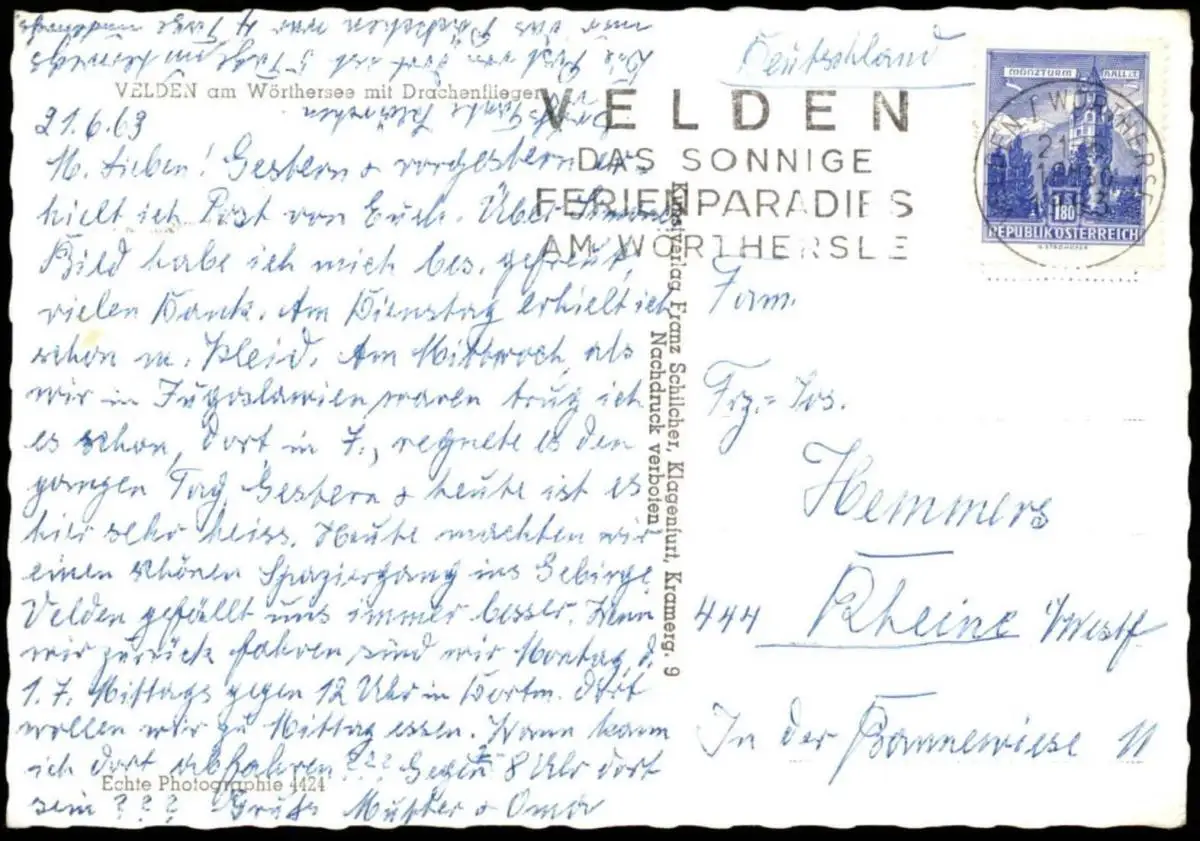 VELDEN am Wörthersee mit Drachenflieger
21.6.63
M. Lieben! Gestern + vorgestern er-
hielt ich Post von Euch. Über
Bild habe ich mich bes. gefreut,
vielen Dank. Am Dienstag erhielt ich
schon m. Kleid. Am Mittwoch, als
wir in Jugoslawien waren trug ich
es schon, dort in J., regnete es den
ganzen Tag. Gestern + heute ist es
hier sehr heiss. Heute machten wir
einen schönen Spaziergang ins Gebirge.
Velden gefällt uns immer besser. Wenn
wir zurück fahren, sind wir Montag, d.
1.7. Mittags gegen 12 Uhr in Dortm. Dort
wollen wir zu Mittag essen. Wann kann
ich dort abfahren??? Gegen 8 Uhr dort
sein??? Gruß Mutter + Oma
Die Post von dort ist 5 Tage unterwegs
nur das Päckchen war 4 Tage unterwegs
Echte Photographie 4424
Kunstverlag Franz Schilcher, Klagenfurt, Kramerg. 9
Nachdruck verboten
Deutschland
VELDEN
DAS SONNIGE
FERIENPARADIES
AM WÖRTHERSEE
MÜNZTURM HALL i.T.
1.80
REPUBLIK ÖSTERREICH
VELDEN WÖRTHERSEE
Fam.
Frz.-Jos.
Hemmers
444 Rheine/Westf
In der Bannewiese 11